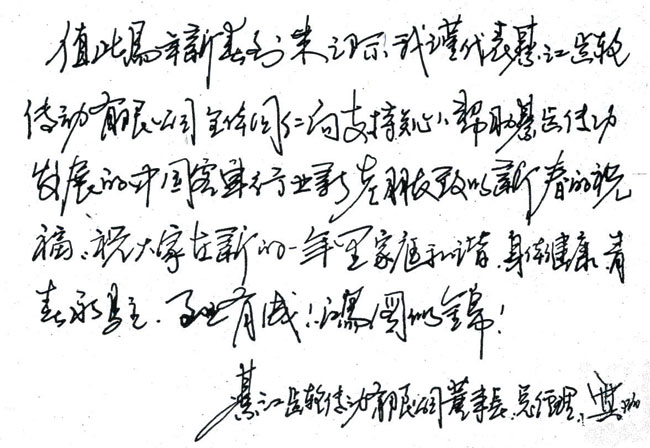 值此马年新春到来之际，我谨代表綦江齿轮
传动有限公司全体同仁向支持、关心、帮助綦齿传动
发展的中国客车行业新老朋友致以新春的祝
福。祝大家在新的一年里家庭和谐、身体健康、青
春永驻、事业有成！鸿图似锦！
綦江齿轮传动有限公司董事长、总经理